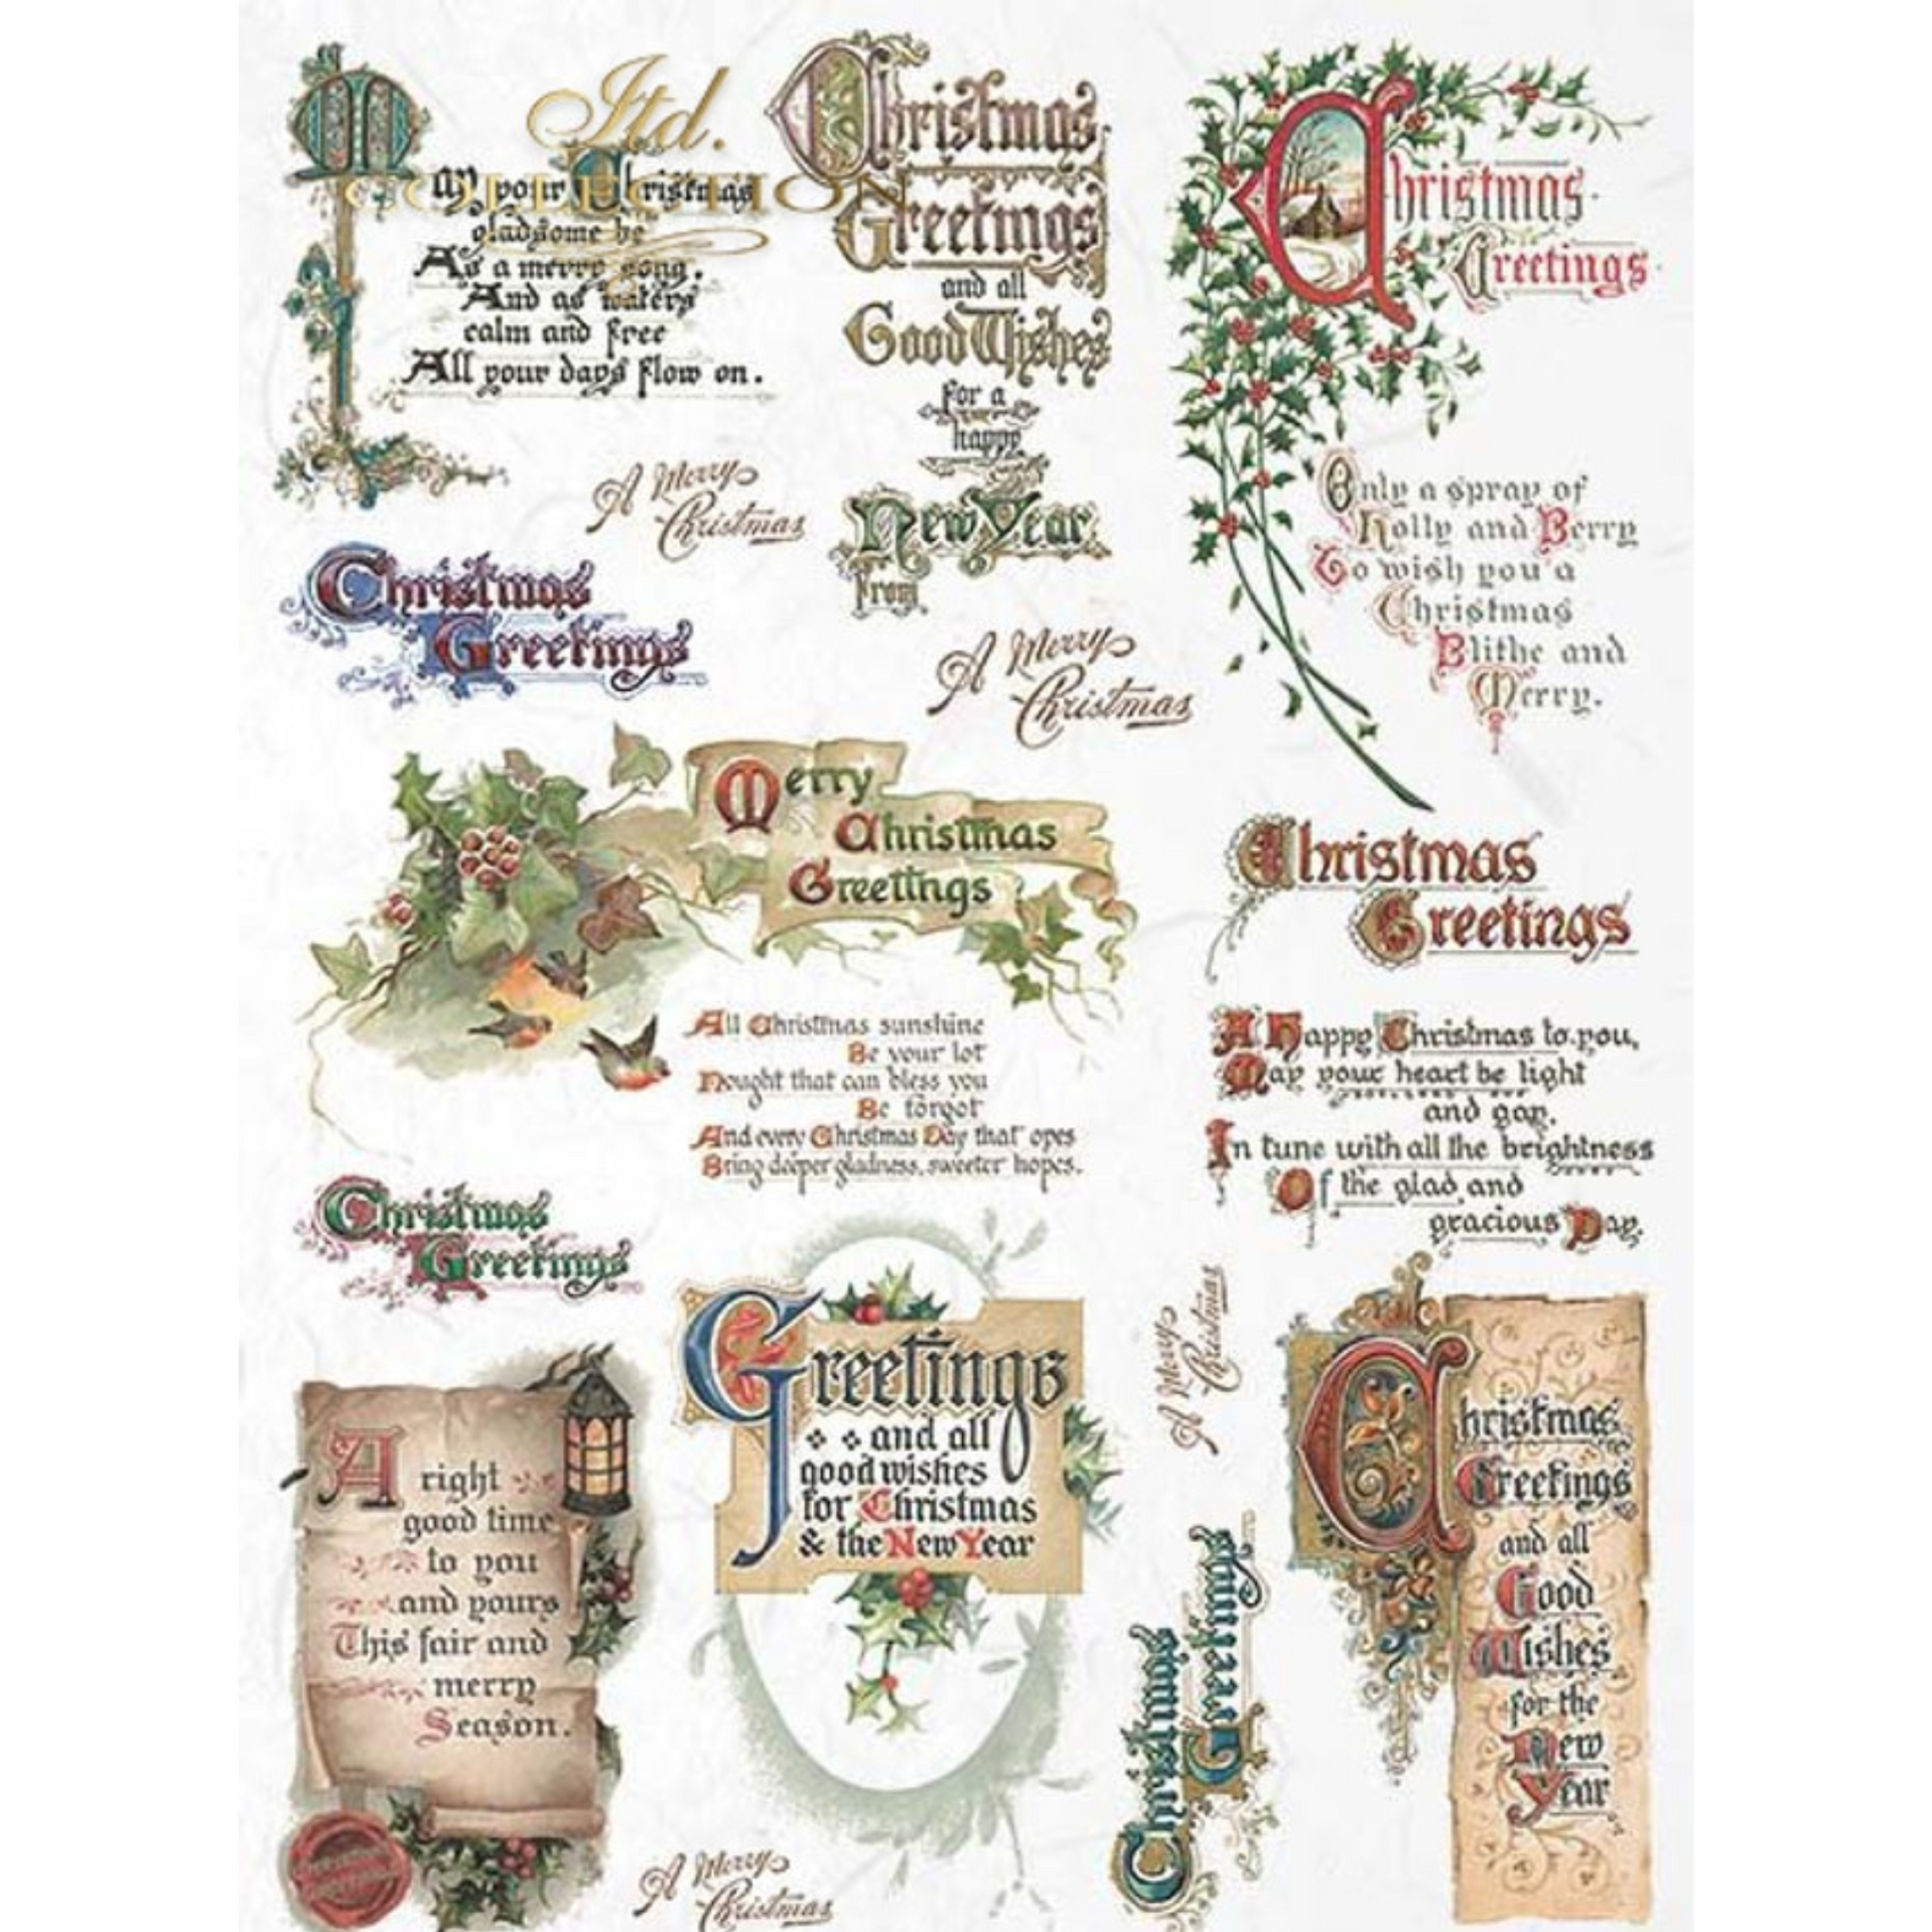 Itd.
COLLECTION
May your Christmas
gladsome be
As a merry song.
And as waters
calm and free
All your days flow on.
Christmas
Greetings
and all
Good Wishes
for a
happy
New Year
From
Christmas
Greetings
Only a spray of
Holly and Berry
To wish you a
Christmas
Blithe and
Merry.
A Merry
Christmas
Christmas
Greetings
A Merry
Christmas
Merry
Christmas
Greetings
All Christmas sunshine
Be your lot
Nought that can bless you
Be forgot
And every Christmas Day that opes
Bring deeper gladness, sweeter hopes.
Christmas
Greetings
A Happy Christmas to you,
May your heart be light
and gay,
In tune with all the brightness
Of the glad and
gracious Day.
Christmas
Greetings
A right
good time
to you
and yours
This fair and
merry
Season.
Greetings
and all
good wishes
for Christmas
& the New Year
A Merry
Christmas
Christmas
Greetings
Christmas
Greetings
and all
Good
Wishes
for the
New
Year
A Merry
Christmas